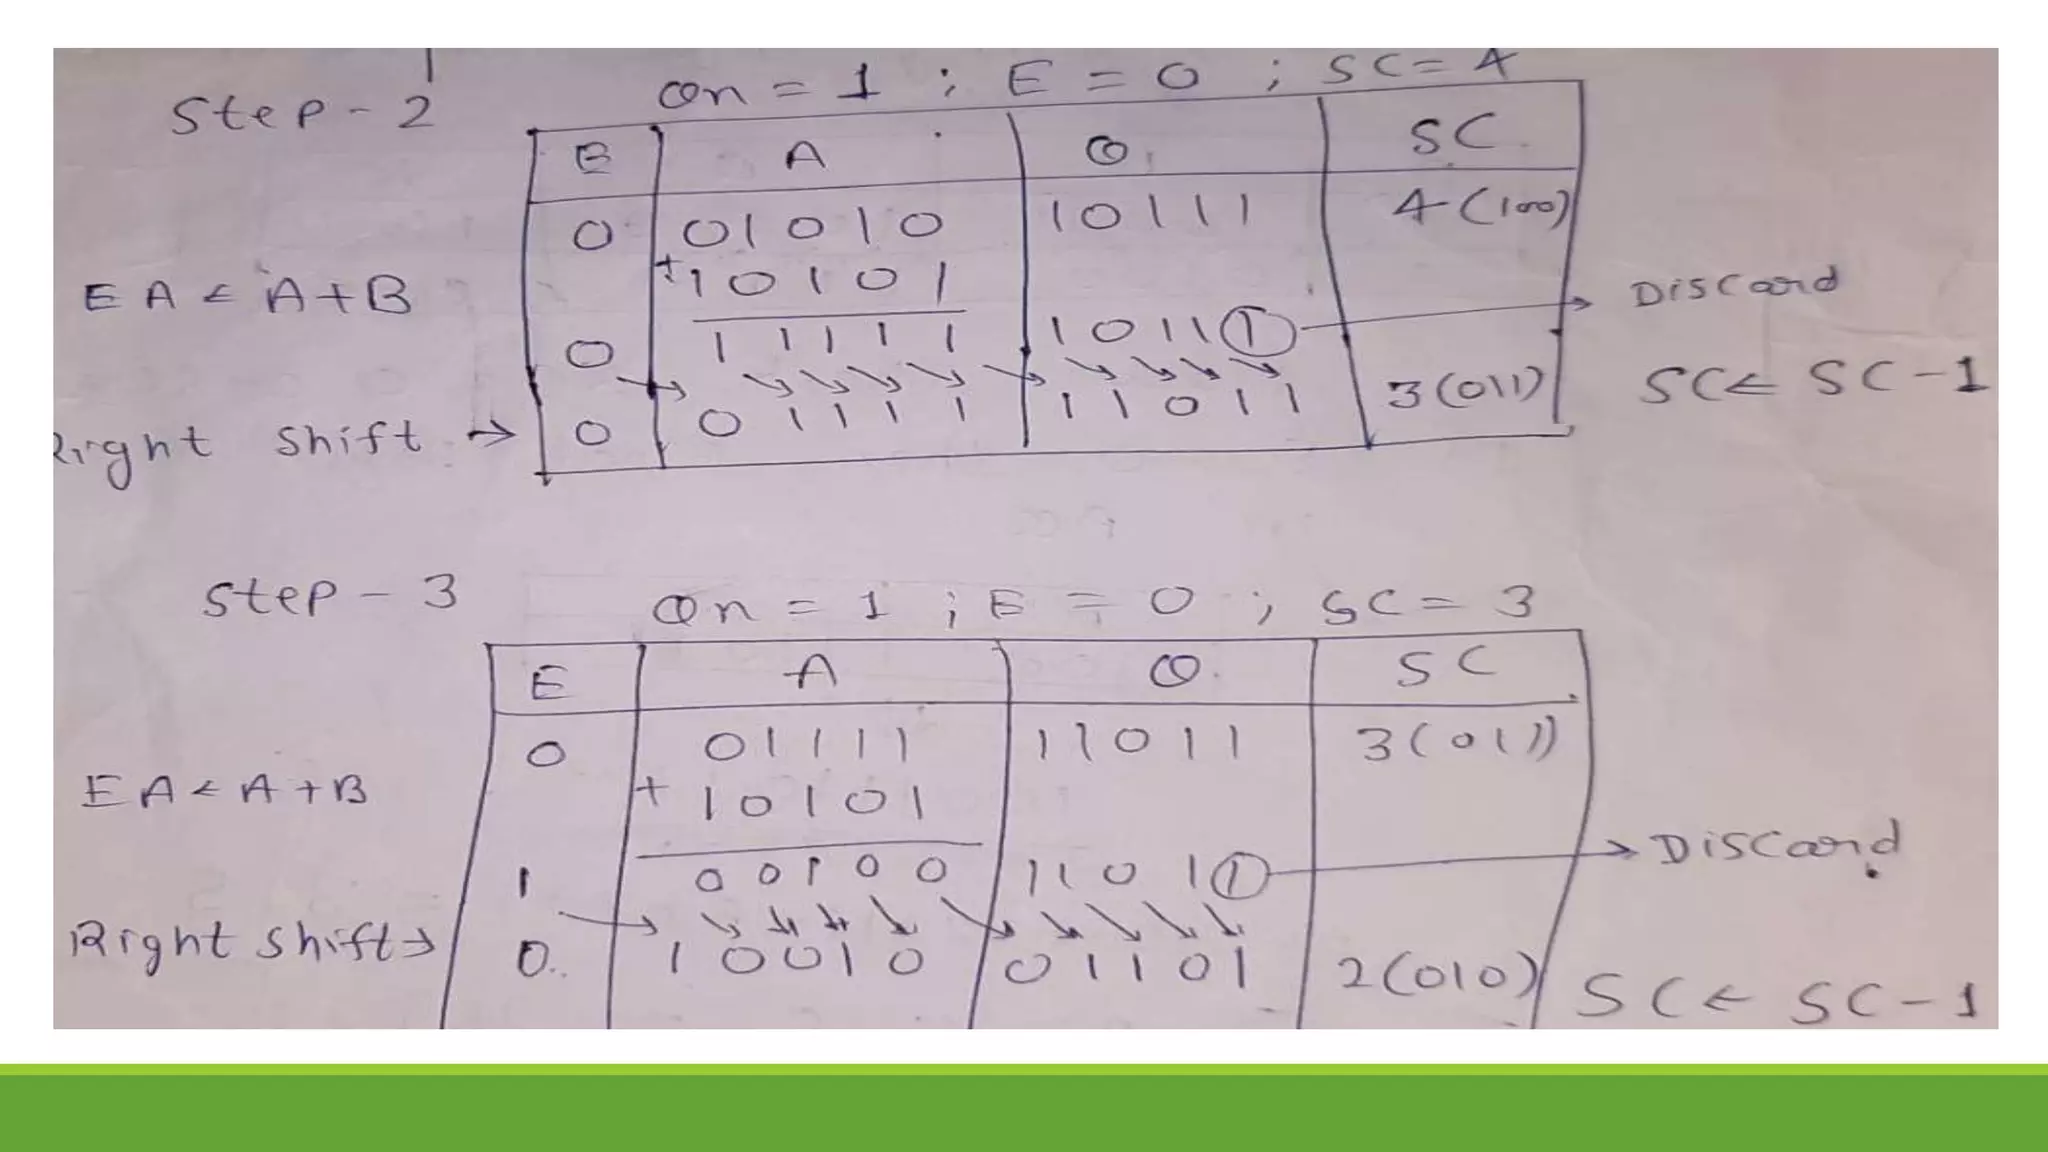 Step - 2 Qn = 1 ; E = 0 ; SC = 4
E A Q SC
0 01010 10111 4 (100)
EA ← A+B + 10101 Discard
0 11111 10111
Right shift → 0 01111 11011 3 (011) SC ← SC - 1
Step - 3 Qn = 1 ; E = 0 ; SC = 3
E A Q SC
0 01111 11011 3 (011)
EA ← A+B + 10101
1 00100 11011 → Discard
Right shift → 0 10010 01101 2 (010) SC ← SC - 1